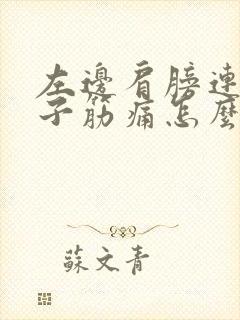 左邊肩膀連
子筋痛怎麼
蘇文青